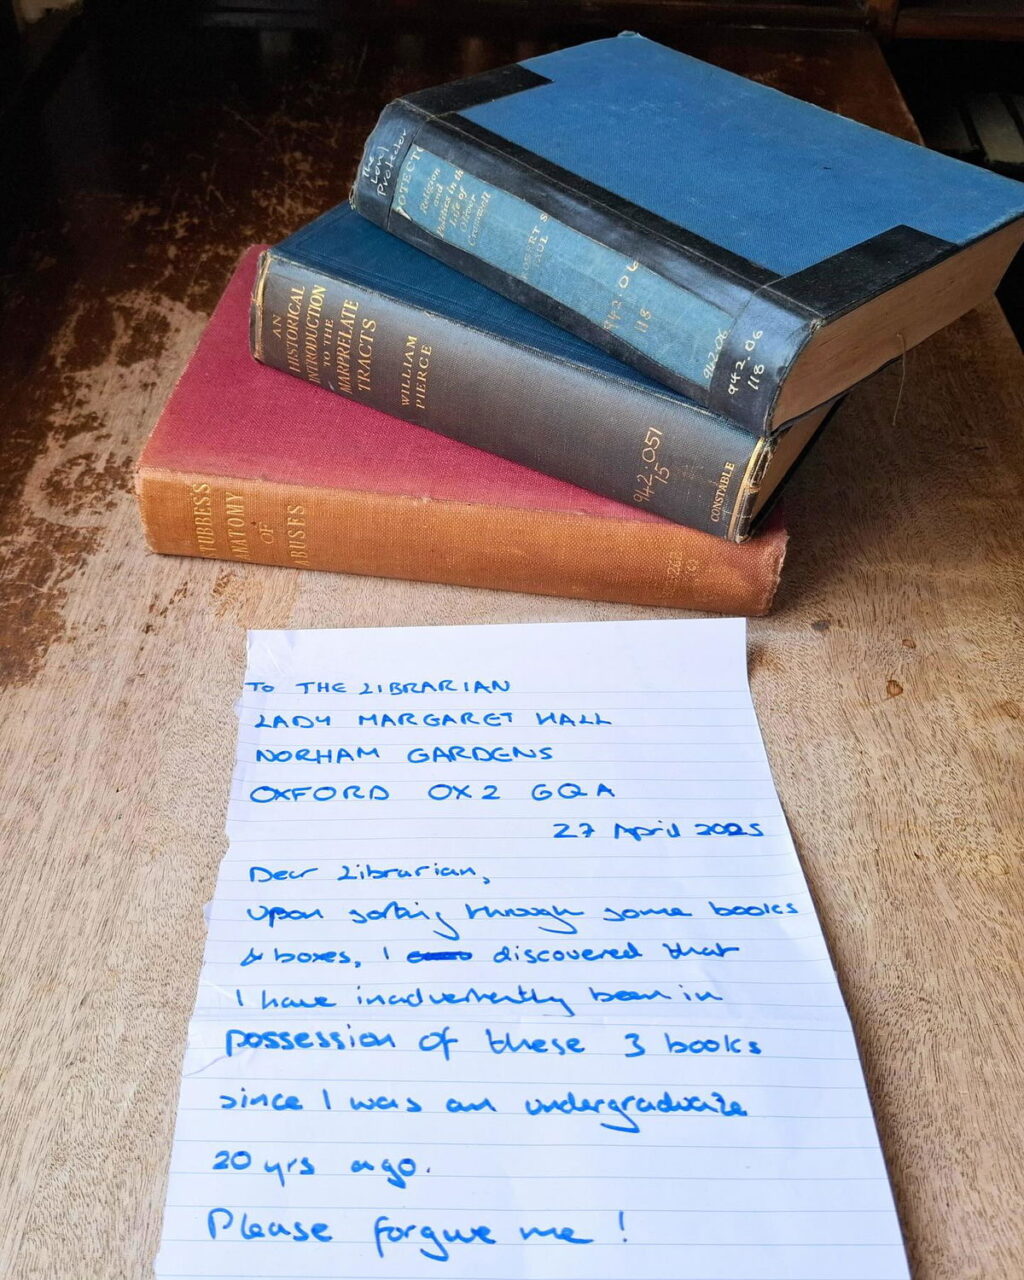 The
Lord
Protector
OTECTO
Religion
and
Politics in the
Life of
Oliver
Cromwell
BERT S.
AUL
942.06
118
942.06
942.06
118
AN
HISTORICAL
INTRODUCTION
TO THE
MARPRELATE
TRACTS
WILLIAM
PIERCE
942.051
15
CONSTABLE
STUBBES'S
ANATOMY
OF
ABUSES
TO THE LIBRARIAN
LADY MARGARET HALL
NORHAM GARDENS
OXFORD OX2 6QA
27 April 2025
Dear Librarian,
Upon sorting through some books
& boxes, I discovered that
I have inadvertently been in
possession of these 3 books
since I was an undergraduate
20 yrs ago.
Please forgive me!